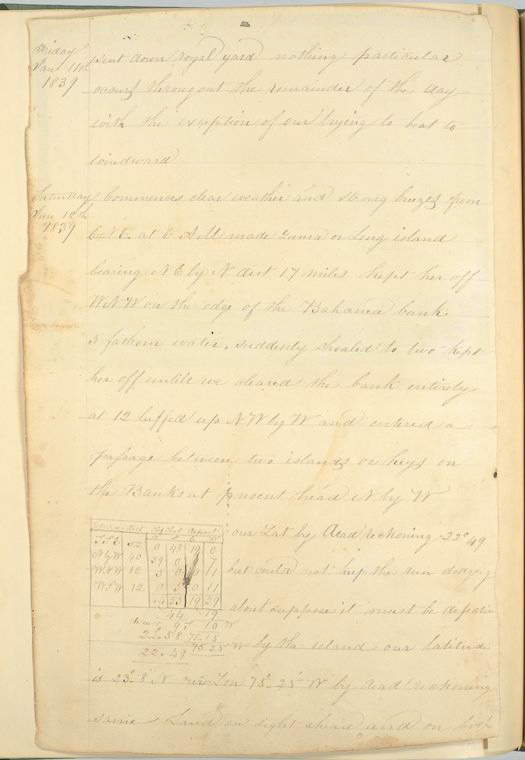 Friday
Jan 11th
1839
sent down royal yard nothing particular
occurs througout the remainder of the day
with the exception of our trying to beat to
windward
Saturday
Jan 12th
1839
Commences clear weather and strong breezes from
E.N.E. at 6 AM made or Long island
bearing NE by N dist 17 miles kept her off
W.N.W on the edge of the Bahama bank
5 fathom water, suddenly shoaled to two kept
her off untill we cleared the bank entirely
at 12 luffed up N W by W and entered a
passage between two islands or keys on
the Banks at present head N. by W
Course dist Lat depart
S.S.E 52 0 48 19 0
N by W 40 39 0 7
W.N.W 12 5 0 0 11
W.S.W 12 0 5 0 11
44 53 19 29
44 19
9 10 W
22.58 75.15
22.49 75.25 W
our Lat by dead reckoning 22° 49
but could not keep the run dodging
about suppose it must be
by the island our latitude
is 23° 8 N our Lon 75° 25 W by dead reckoning
same Land in sight ahead and on both